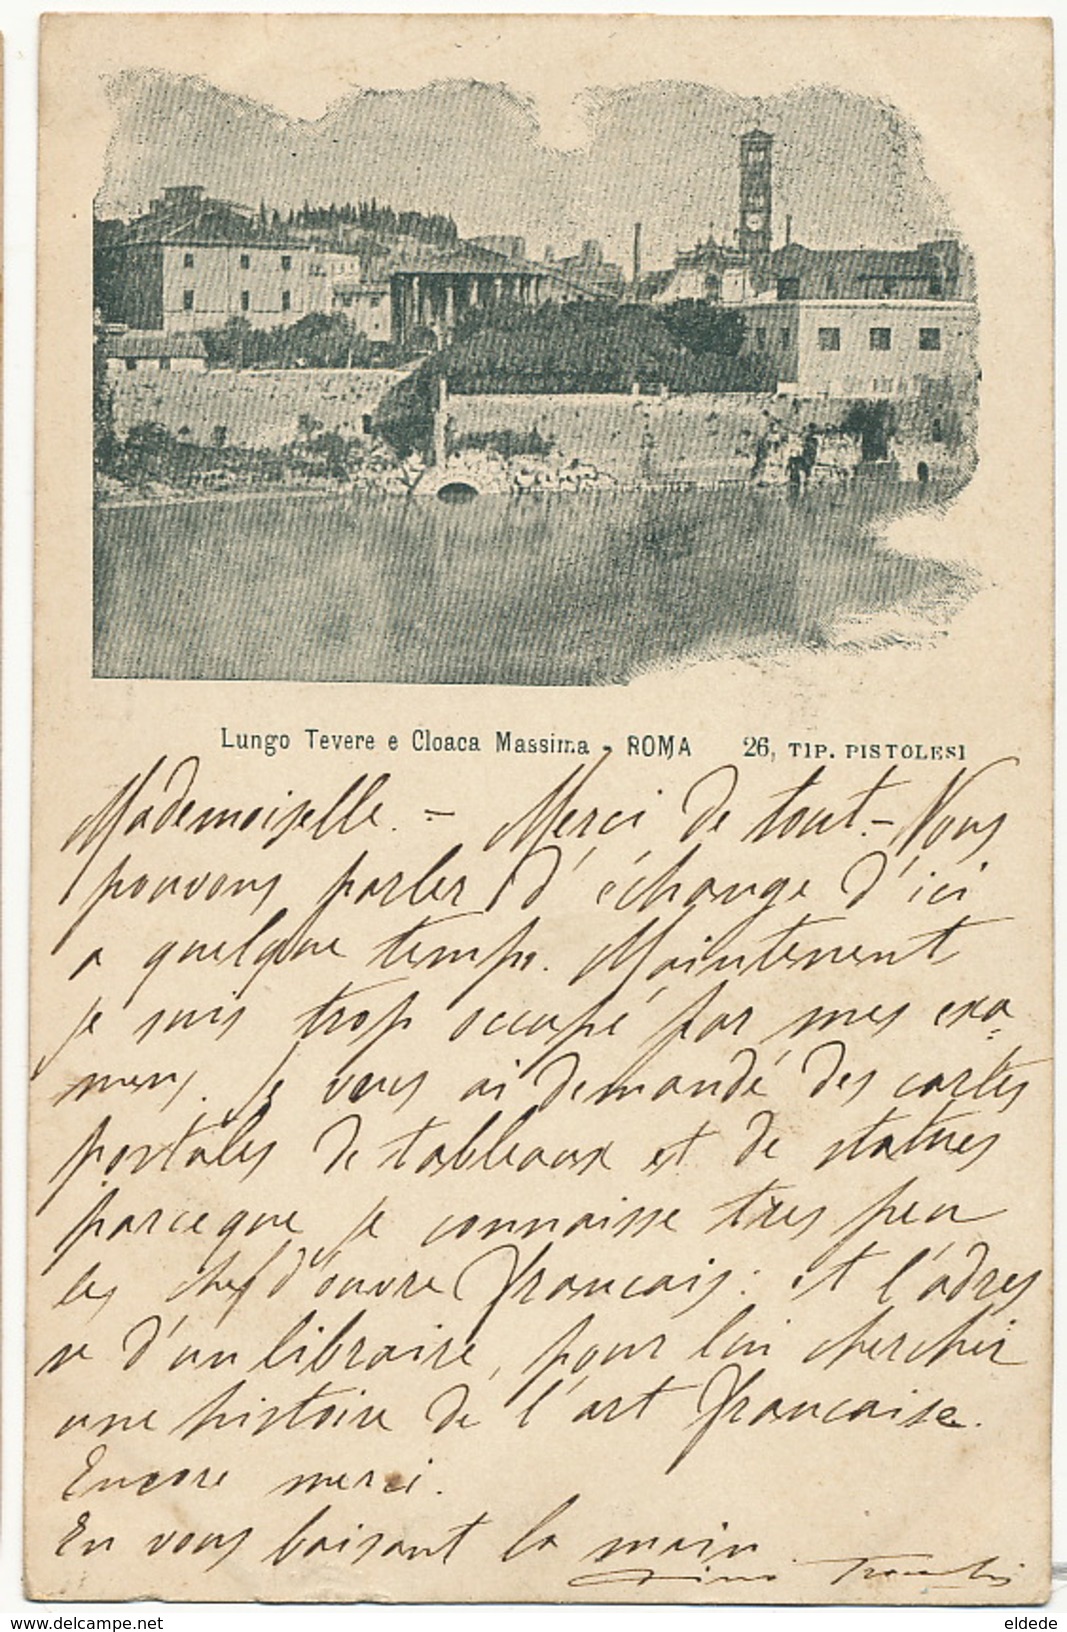 Lungo Tevere e Cloaca Massima - ROMA 26, TIP. PISTOLESI
Mademoiselle. - Merci de tout. - Nous
pouvons parler d'échange d'ici
a quelque temps. Maintenent
je suis trop occupé par mes exa-
mens. Je vous ai demandé des cartes
postales de tableaux et de statues
parceque je connaisse tres peu
les chef d'ouvre francais: et l'adres
se d'un libraire, pour lui chercher
une histoire de l'art francaise.
Encore merci.
En vous baisant la main
Gino
www.delcampe.net
eldede